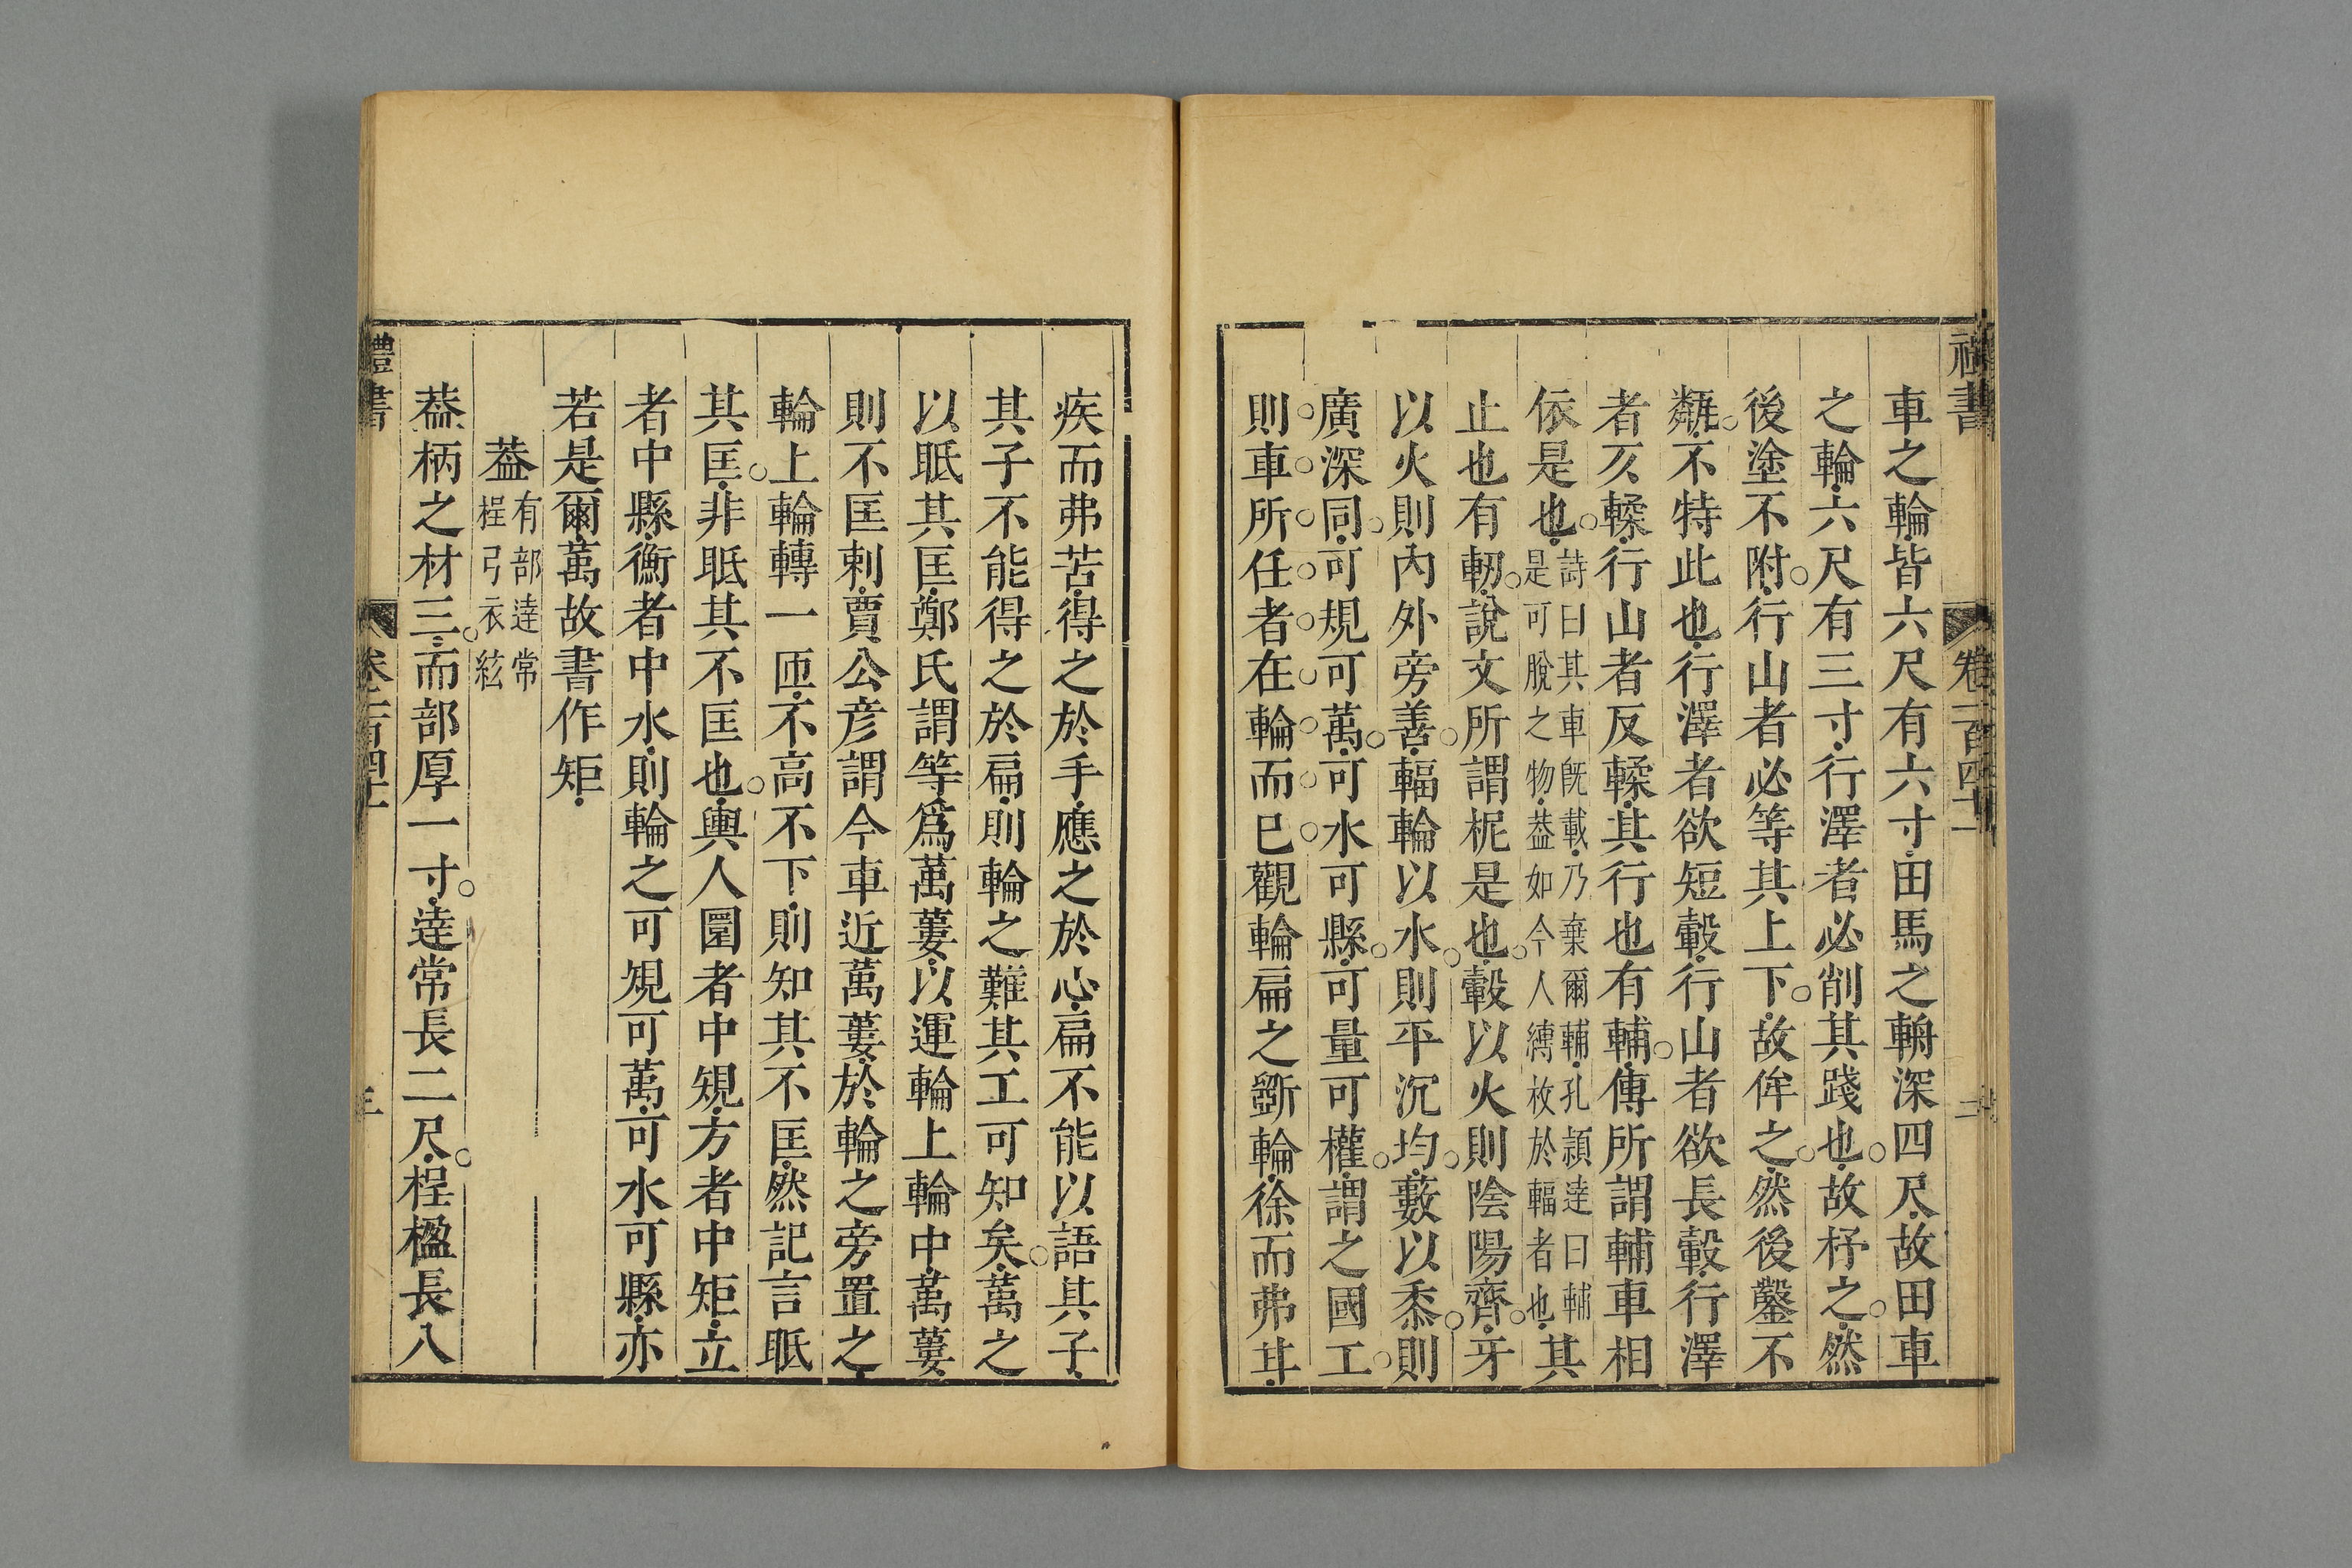 禮書　卷一百四十一　二
車之輪皆六尺有六寸田馬之輈深四尺故田車
之輪六尺有三寸行澤者必削其踐也故杼之然
後塗不附行山者必等其上下故侔之然後鑿不
甐不特此也行澤者欲短轂行山者欲長轂行澤
者反輮行山者反輮其行也有輔傳所謂輔車相
依是也詩曰其車旣載乃棄爾輔孔穎達曰輔是可脫之物葢如今人縛杖於輻者也其
止也有軔說文所謂柅是也轂以火則陰陽齊牙
以火則內外旁善輻輪以水則平沉均藪以黍則
廣深同可規可萬可水可縣可量可權謂之國工
則車所任者在輪而已觀輪扁之斲輪徐而弗甘
疾而弗苦得之於手應之於心扁不能以語其子
其子不能得之於扁則輪之難其工可知矣萬之
以眡其匡鄭氏謂等爲萬蔞以運輪上輪中萬蔞
則不匡剌賈公彦謂今車近萬蔞於輪之旁置之
輪上輪轉一匝不高不下則知其不匡然記言眡
其匡非眡其不匡也輿人圜者中規方者中矩立
者中縣衡者中水則輪之可規可萬可水可縣亦
若是爾萬故書作矩
葢有部逹常桯弓衣紘
葢柄之材三而部厚一寸逹常長二尺桯楹長八
禮書　卷一百四十一　三